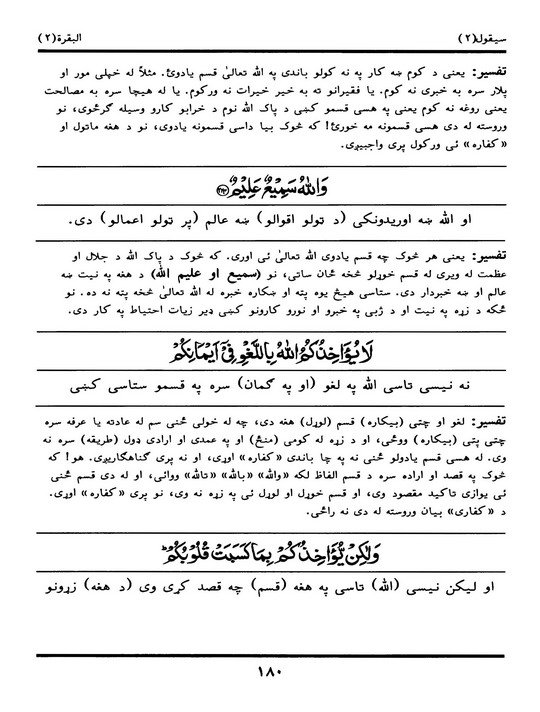 سيقول(٢)
البقرة(٢)
تفسير: يعنى د كوم ښه كار په نه كولو باندې په الله تعالىٰ قسم يادوئ. مثلاً له خپلى مور او
پلار سره به خبرى نه كوم. يا فقيرانو ته به خير خيرات نه وركوم. يا له هيچا سره به مصالحت
يعنى روغه نه كوم يعنى په هسى قسمو كښى د پاک الله نوم د خرابو كارو وسيله گرځوى، نو
وروسته له دى هسى قسمونه مه خورئ! كه څوک بيا داسى قسمونه يادوى، نو د هغه ماتول او
«كفاره» ئى وركول پرى واجبيږى.
وَاللّٰهُ سَمِيْعٌ عَلِيْمٌ ﴿۲۲۴﴾
او الله ښه اوريدونكى (د ټولو اقوالو) ښه عالم (پر ټولو اعمالو) دى.
تفسير: يعنى هر څوک چه قسم يادوى الله تعالىٰ ئى اورى. كه څوک د پاک الله د جلال او
عظمت له ويرى له قسم خوړلو څخه ځان ساتى، نو (سميع او عليم الله) د هغه په نيت ښه
عالم او ښه خبردار دى. ستاسى هيڅ يوه پټه او ښكاره خبره له الله تعالىٰ څخه پټه نه ده. نو
ځكه د زړه په نيت او د ژبى په خبرو او نورو كارونو كښى ډير زيات احتياط په كار دى.
لَا يُؤَاخِذُكُمُ اللّٰهُ بِاللَّغْوِ فِيْٓ اَيْمَانِكُمْ
نه نيسى تاسى الله په لغو (او په گمان) سره په قسمو ستاسى كښى
تفسير: لغو او چتى (بيكاره) قسم (لوړل) هغه دى، چه له خولى ځنى سم له عادته يا عرفه سره
چتى پتى (بيكاره) ووځى، او د زړه له كومى (منځ) او په عمدى او ارادى ډول (طريقه) سره نه
وى. له هسى قسم يادولو ځنى نه په چا باندى «كفاره» اوړى، او نه پرى گناهگاريږى. هو! كه
څوک په قصد او اراده سره د قسم الفاظ لكه «والله» «بالله» «تالله» ووائى، او له دى قسم ځنى
ئى يوازى تاكيد مقصود وى، او قسم خوړل او لوړل ئى په زړه نه وى، نو پرى «كفاره» اوړى.
د «كفارى» بيان وروسته له دى نه راځى.
وَلٰكِنْ يُّؤَاخِذُكُمْ بِمَا كَسَبَتْ قُلُوْبُكُمْ ؕ
او ليكن نيسى (الله) تاسى په هغه (قسم) چه قصد كړى وى (د هغه) زړونو
١٨٠